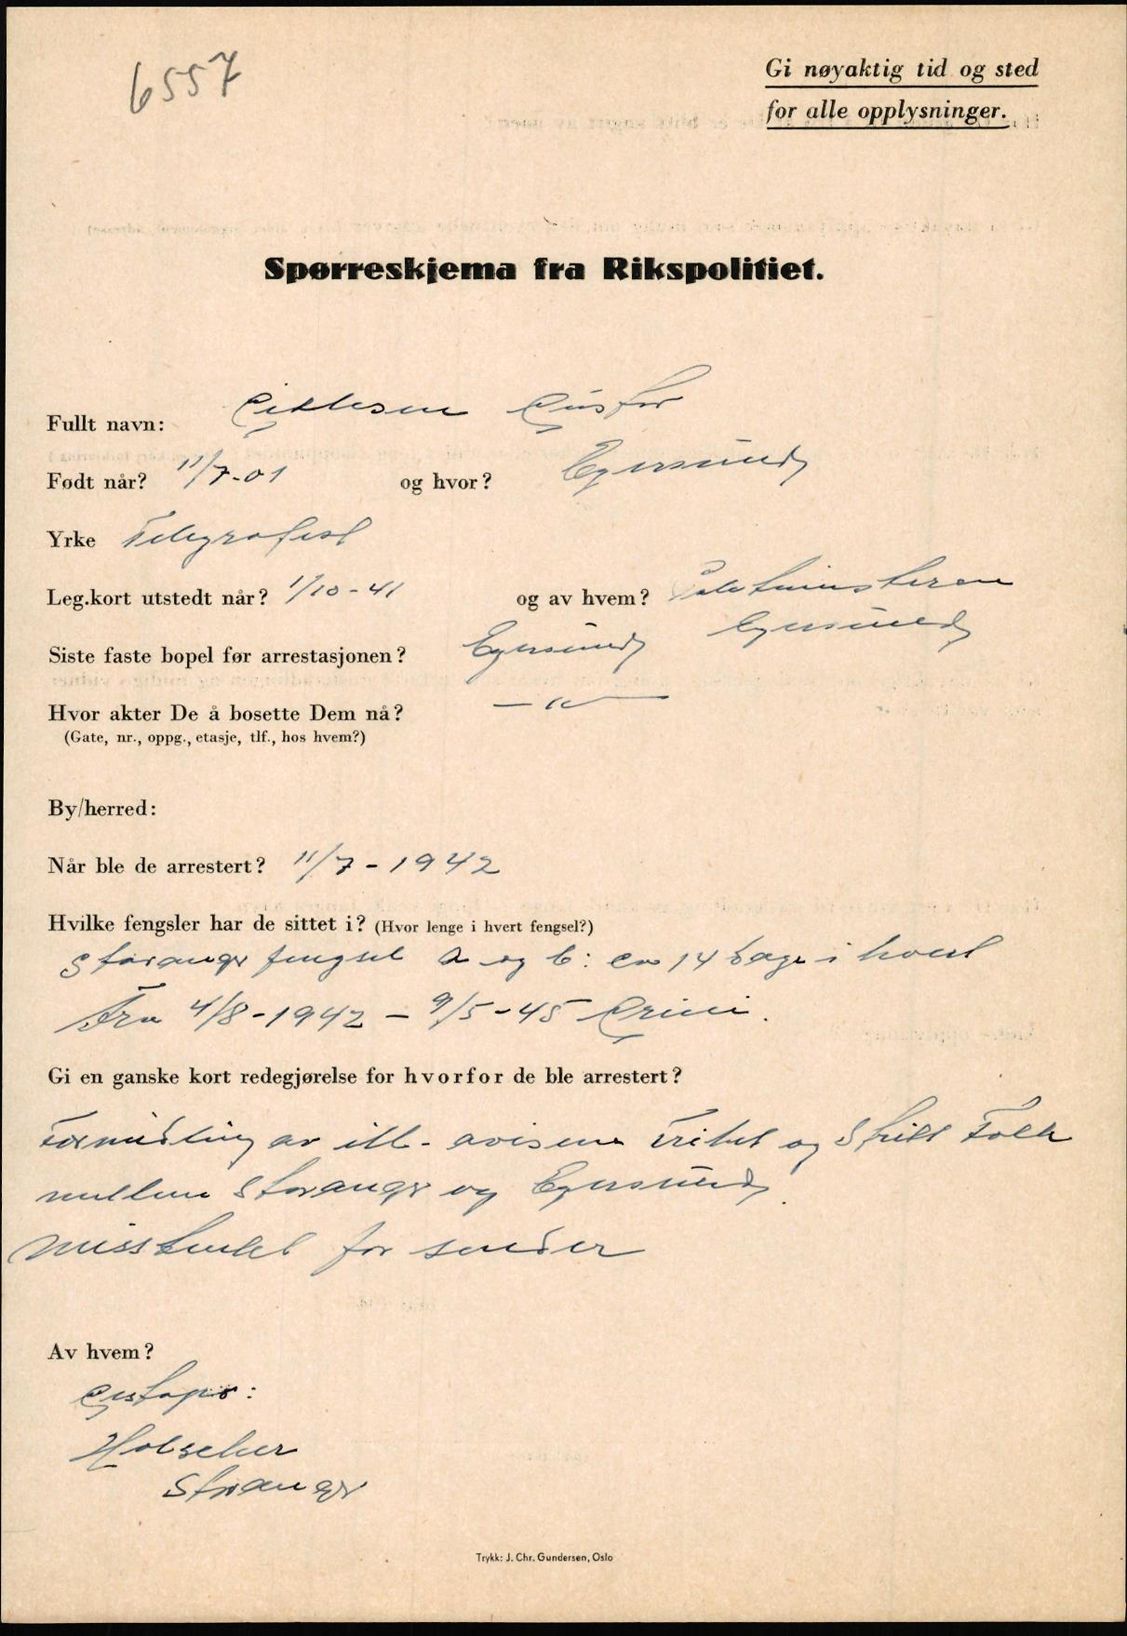 6557
Gi nøyaktig tid og sted
for alle opplysninger.
Spørreskjema fra Rikspolitiet.
Fullt navn: Gustav
Født når? 11/7-01 og hvor? Egersund
Yrke Telegrafist
Leg.kort utstedt når? 1/10-41 og av hvem? Politimesteren
Egersund
Siste faste bopel før arrestasjonen? Egersund
Hvor akter De å bosette Dem nå? — " —
(Gate, nr., oppg., etasje, tlf., hos hvem?)
By/herred:
Når ble de arrestert? 11/7-1942
Hvilke fengsler har de sittet i? (Hvor lenge i hvert fengsel?)
Stavanger fengsel A og B: ca 14 dage i hvert
Fra 4/8-1942 - 9/5-45 Grini.
Gi en ganske kort redegjørelse for hvorfor de ble arrestert?
Formidling av ill. avisene Frihet og Fritt Folk
mellem Stavanger og Egersund.
Misstenkt for sender
Av hvem?
Gestapo:
Holscher
Stavanger
Trykk: J. Chr. Gundersen, Oslo